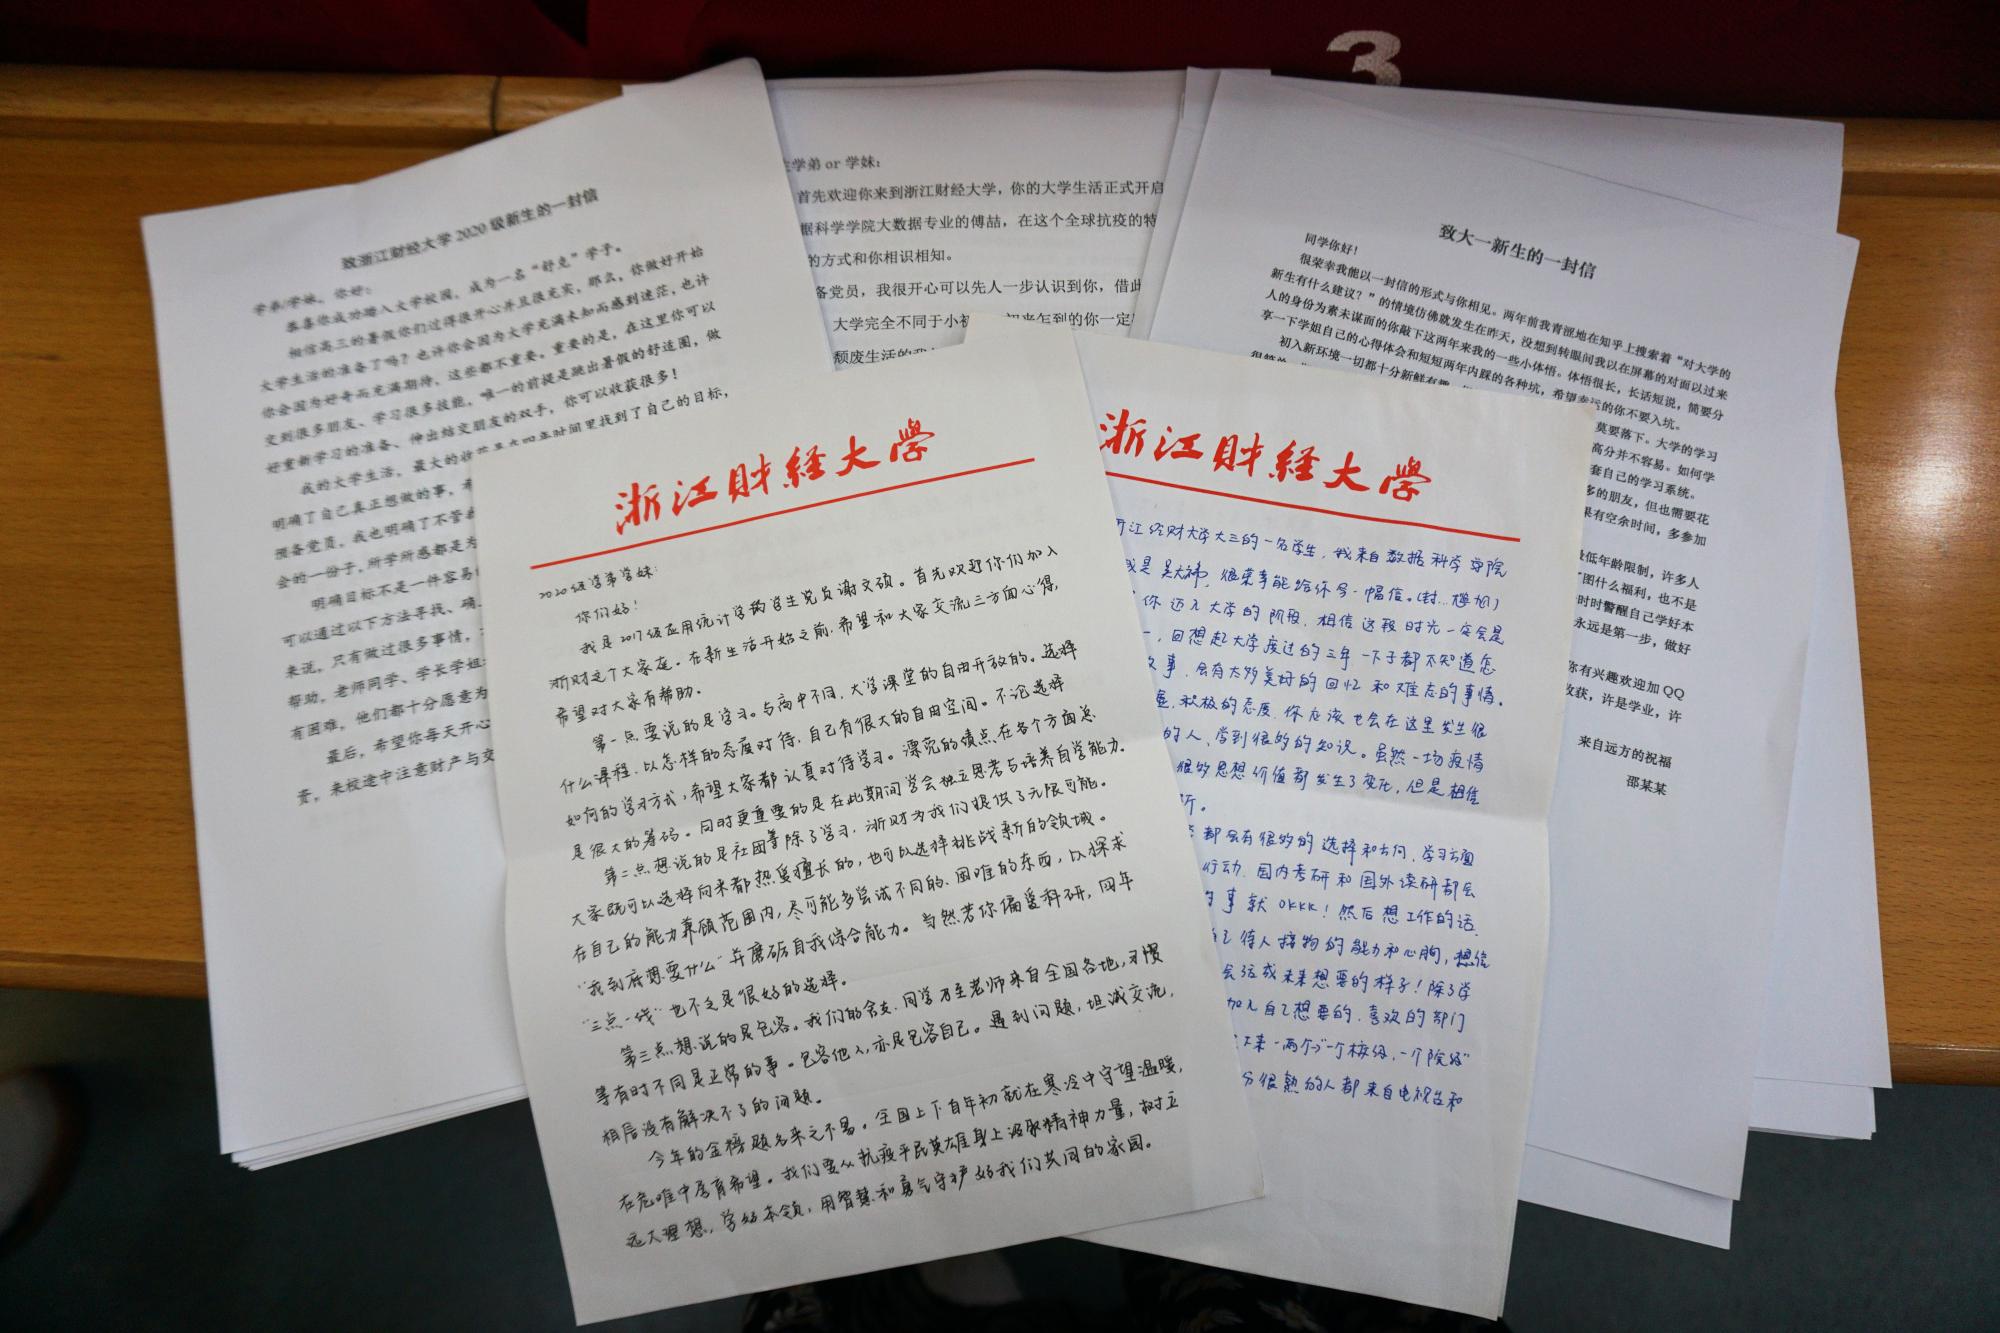 3
致浙江财经大学2020级新生的一封信
学弟/学妹，你好：
恭喜你成功踏入大学校园，成为一名“舒克”学子。
相信高三的暑假你们过得很开心并且很充实，那么，你做好开始
大学生活的准备了吗？也许你会因为大学充满未知而感到迷茫，也许
你会因为好奇而充满期待，这些都不重要。重要的是，在这里你可以
交到很多朋友、学习很多技能，唯一的前提是跳出暑假的舒适圈，做
好重新学习的准备、伸出结交朋友的双手，你可以收获很多！
我的大学生活，最大的收获是在四年时间里找到了自己的目标，
明确了自己真正想做的事，
预备党员，我也明确了不管
会的一份子，所学所感都是为
明确目标不是一件容易
可以通过以下方法寻找、确
来说，只有做过很多事情，
帮助，老师同学、学长学姐
有困难，他们都十分愿意为
最后，希望你每天开心
责，来校途中注意财产与交
学弟 or 学妹：
首先欢迎你来到浙江财经大学，你的大学生活正式开启
据科学学院大数据专业的傅喆，在这个全球抗疫的特
的方式和你相识相知。
备党员，我很开心可以先人一步认识到你，借此
大学完全不同于小初 初来乍到的你一定
颓废生活的
致大一新生的一封信
同学你好！
很荣幸我能以一封信的形式与你相见。两年前我青涩地在知乎上搜索着“对大学的
新生有什么建议？”的情境仿佛就发生在昨天，没想到转眼间我以在屏幕的对面以过来
人的身份为素未谋面的你敲下这两年来我的一些小体悟。体悟很长，长话短说，简要分
享一下学姐自己的心得体会和短短两年内踩的各种坑，希望幸运的你不要入坑。
初入新环境一切都十分新鲜有趣，
莫要落下。大学的学习
高分并不容易。如何学
套自己的学习系统。
多的朋友，但也需要花
果有空余时间，多参加
最低年龄限制，许多人
“图什么福利，也不是
时时警醒自己学好本
永远是第一步，做好
你有兴趣欢迎加QQ
收获，许是学业，许
来自远方的祝福
邵某某
浙江财经大学
2020级学弟学妹：
你们好！
我是2017级应用统计学的学生党员谢文硕。首先欢迎你们加入
浙财这个大家庭。在新生活开始之前，希望和大家交流三方面心得，
希望对大家有帮助。
第一点要说的是学习。与高中不同，大学课堂的自由开放的。选择
什么课程，以怎样的态度对待，自己有很大的自由空间。不论选择
如何的学习方式，希望大家都认真对待学习。漂亮的绩点在各个方面总
是很大的筹码。同时更重要的是在此期间学会独立思考与培养自学能力。
第二点想说的是社团等除了学习，浙财为我们提供了无限可能。
大家既可以选择向来都热爱擅长的，也可以选择挑战新的领域。
在自己的能力兼顾范围内，尽可能多尝试不同的、困难的东西，以探求
“我到底想要什么”并磨砺自我综合能力。当然若你偏爱科研，四年
“三点一线”也不乏是很好的选择。
第三点想说的是包容。我们的舍友、同学乃至老师来自全国各地，习惯
等有时不同是正常的事。包容他人，亦是包容自己。遇到问题，坦诚交流，
相信没有解决不了的问题。
今年的金榜题名来之不易。全国上下自年初就在寒冷中守望温暖，
在危难中孕育希望。我们要从抗疫平民英雄身上汲取精神力量，树立
远大理想，学好本领，用智慧和勇气守护好我们共同的家园。
浙江财经大学
浙江经财大学大三的一名学生，我来自数据科学学院
我是吴大神，很荣幸能给你写一幅信。(封…尴尬)
你迈入大学的阶段，相信这段时光一定会是
一，回想起大学度过的三年一下子都不知道怎
故事，会有太多美好的回忆和难忘的事情。
积极的态度，你应该也会在这里发生很
的人、学到很多的知识。虽然一场疫情
很多思想价值都发生了变化，但是相信
都会有很多的选择和方向，学习方面
行动，国内考研和国外读研都会
的事就OKKK！然后想工作的话，
自己待人接物的能力和心胸，想信
会活成未来想要的样子！除了学
加入自己想要的、喜欢的部门
下来一两个“一个校级，一个院级”
分很熟的人都来自电视台和